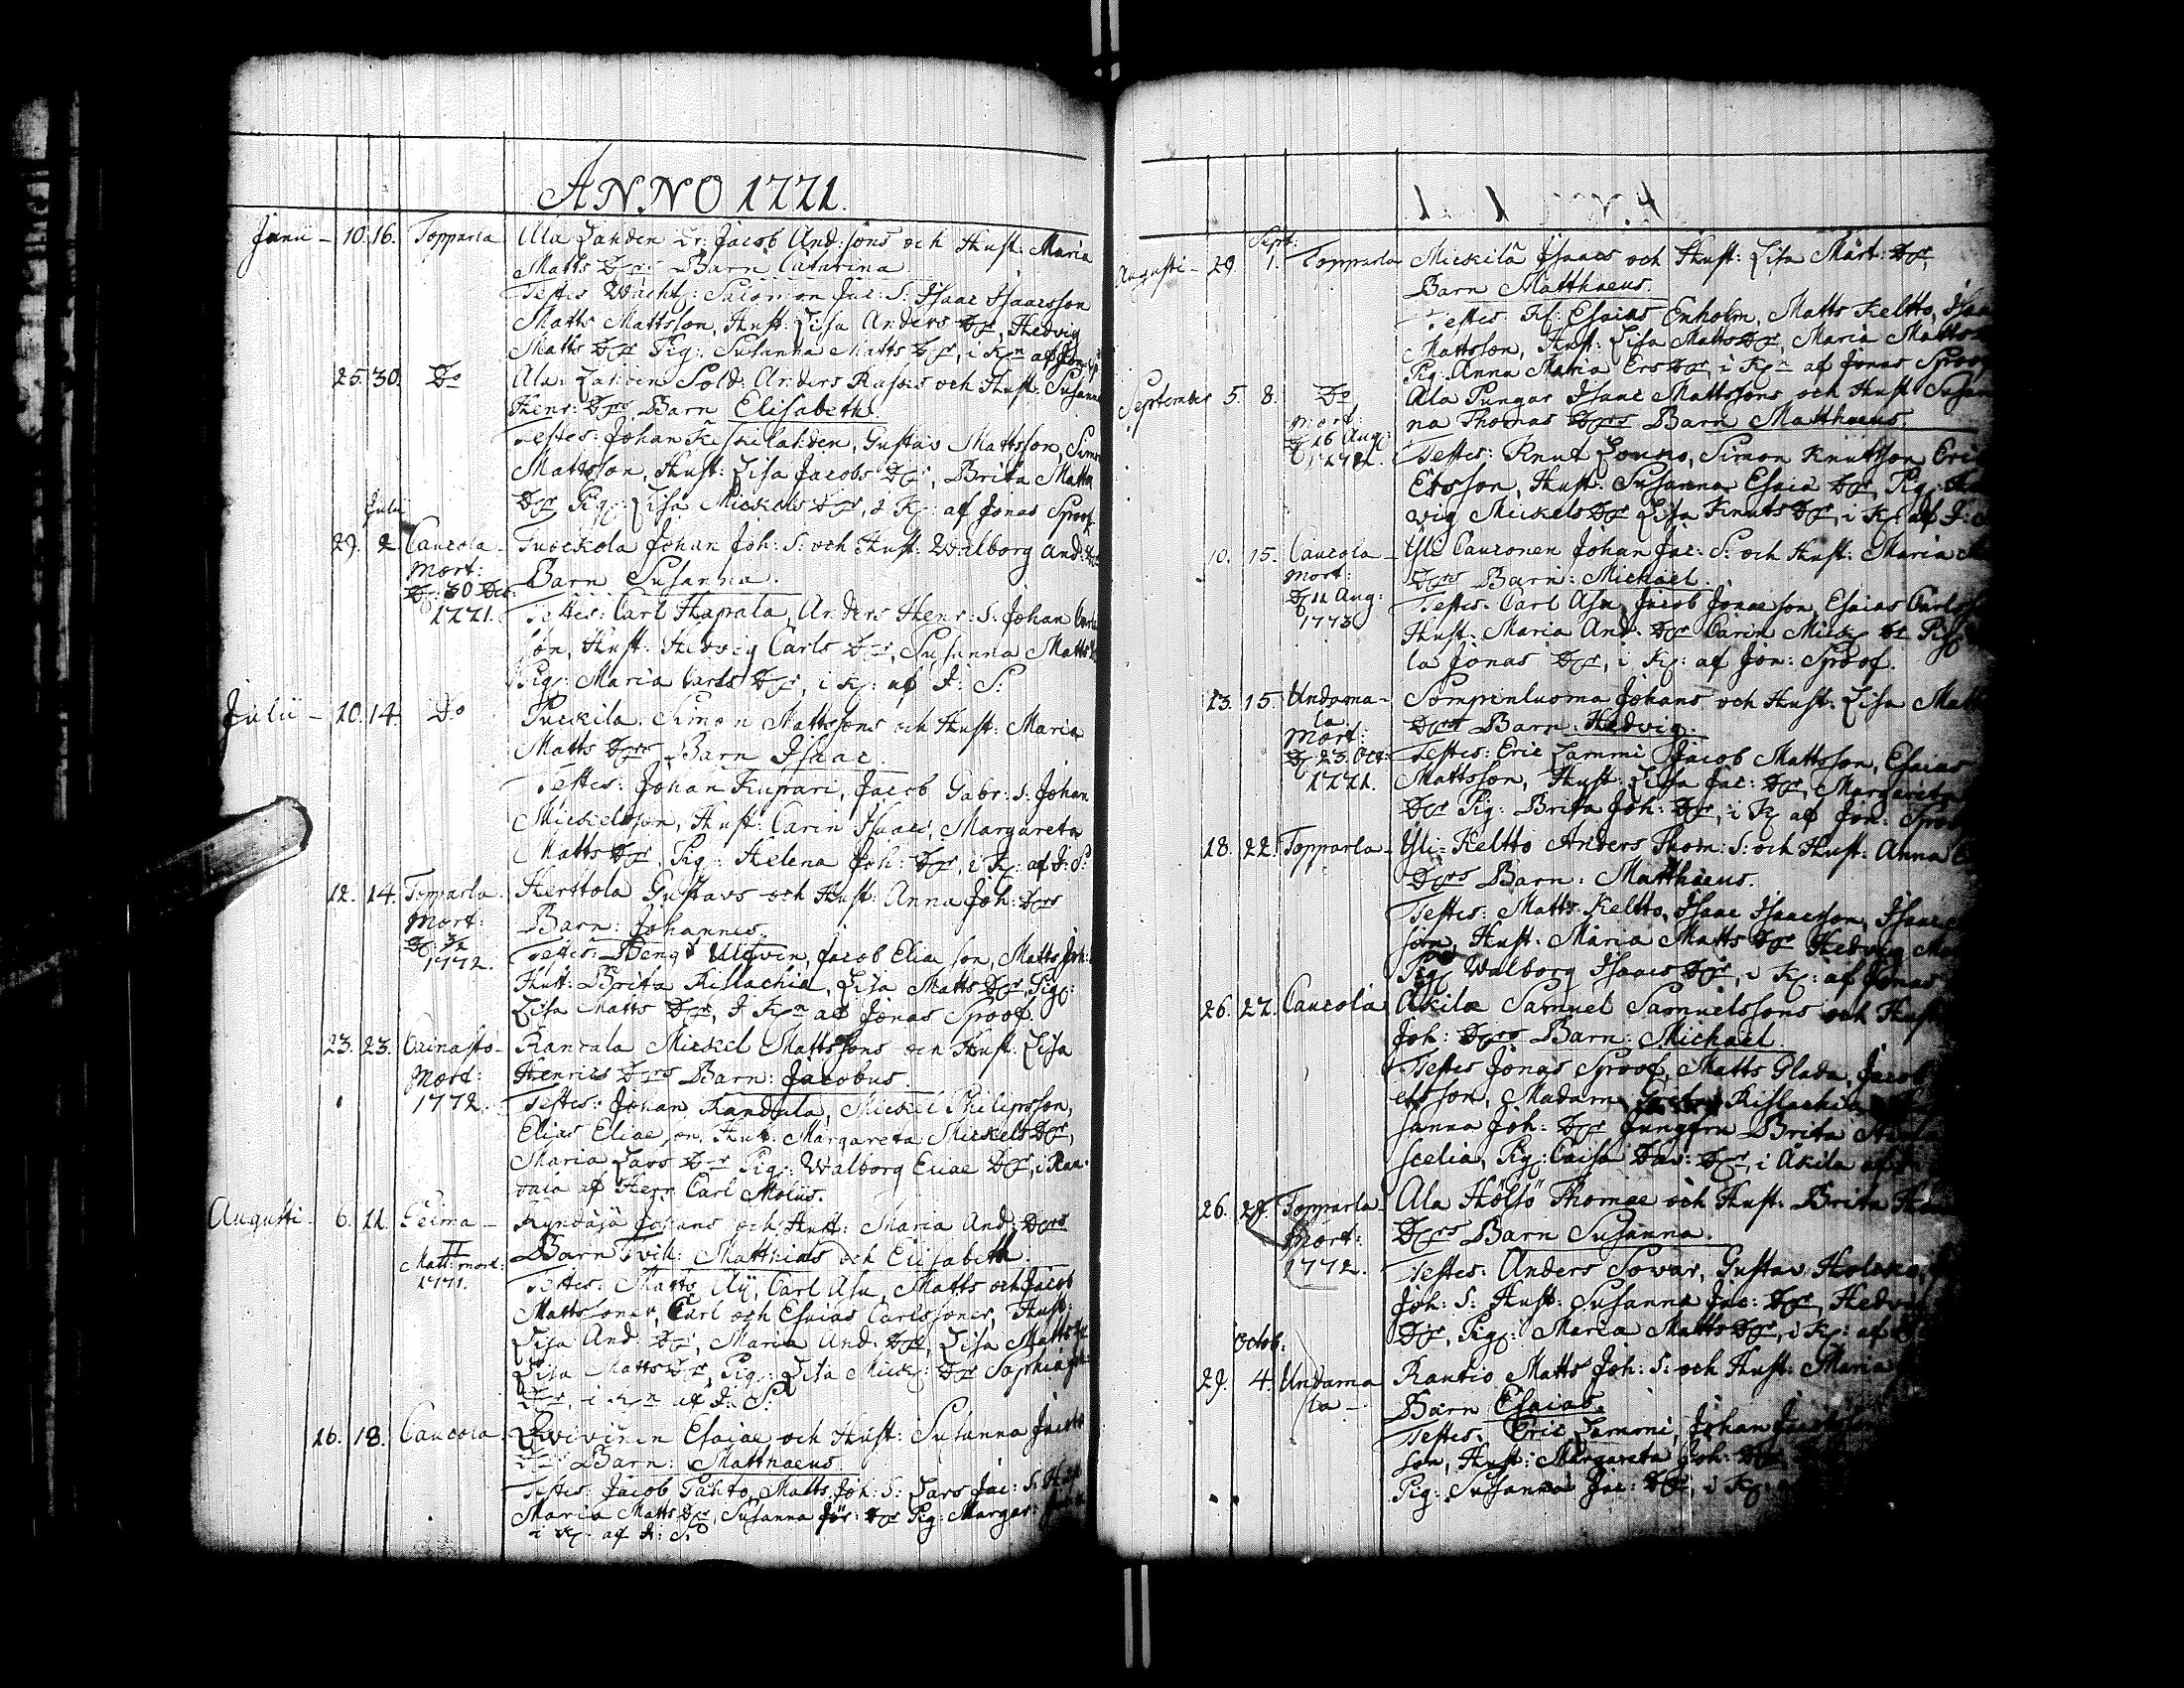 ANNO 1771.
Junii - 10. 16. Topparla Ala Lahden Dr: Jacob And: sons och Hust: Maria
Matts Dr: Barn Catarina
Testes Wacht: Salomon Jac: S: Isaac Isaacsson
Matts Mattsson, Hust: Lisa Anders Dr, Hedvig
Matts Dr Pig: Susanna Matts Dr, i K:n af
25. 30. Do Ala Lahden Sold: Anders och Hust: Susanna
Henr: Drs Barn Elisabeth.
Testes: Johan Keskilahden, Gustav Mattsson, Simon
Mattsson, Hust: Lisa Jacobs Dr, Brita Matts
Dr Pig: Lisa Mickels Dr, i K: af Jonas Sproof.
Julii
29. 2. Caucola Tuockola Johan Joh: S: och Hust: Walborg And:
Mort: Barn Susanna.
D: 30 Dec:
1771. Testes: Carl Hapala, Anders Henr: S: Johan
son, Hust: Hedvig Carls Dr, Susanna Matts
Pig: Maria Carls Dr, i K: af J: S:
Julii - 10. 14. Do Simon Mattssons och Hust: Maria
Matts Drs Barn Isaac.
Testes: Johan Kupari, Jacob Gabr: S: Johan
Mickelsson, Hust: Carin Isaacs, Margareta
Matts Dr, Pig: Helena Joh: Dr, i K: af J: S:
12. 14. Topparla Herttola Gustavs och Hust: Anna Joh: Drs
Mort: Barn: Johannes.
1772. Testes: Bengt Ulfven, Jacob Eliae son, Matts Joh:
Hust: Brita Kislachia, Lisa Matts Dr, Pig:
Lisa Matts Dr, I K:n af Jonas Sproof.
23. 23. Cainasto - Mickel Mattssons och Hust: Lisa
Mort: Henrics Drs Barn: Jacobus.
1772. Testes: Johan Kandala, Mickel Philipsson,
Elias Eliae son, Hust: Margareta Mickels Dr,
Maria Lars Dr Pig: Walborg Eliae Dr, i Kan-
dala af Herr Carl Moliis.
Augusti - 6. 11. Peima - Kyndäjä Johans och Hust: Maria And: Drs
II Barn Tvill: Matthias och Elisabeth.
Matt: mort:
1771. Testes: Matts Aÿ, Carl Asu, Matts och Jacob
Mattssöner, Carl och Esaias Carlssöner, Hust:
Lisa And: Dr, Maria And: Dr, Lisa Matts Dr
Lisa Matts Dr, Pig: Lisa Mick: Dr Sophia
Dr, i K:n af J: S:
16. 18. Caucola. Esaiae och Hust: Susanna Jacobs
Dr Barn: Matthaeus.
Testes: Jacob Pahto, Matts Joh: S: Lars Jac: S: Hust
Maria Matts Dr, Susanna Dr Pig: Margar:
i K: af J: S:
Sept:
Augusti - 29 1. Topparla Mickilä Isaacs och Hust: Lisa Märt: Dr
Barn Matthaeus.
Testes Esaias Enholm, Matts Keltto,
Mattsson, Hust: Lisa Matts Dr, Maria Matts
Pig: Anna Maria Ers Dr, i K:n af Jonas Sproof
September 5. 8. Do Ala Pungar Isaac Mattssons och Hust
mort: na Thomas Drs Barn Matthaeus.
D 16 Aug:
1772. Testes: Knut Louko, Simon Knutsson
Ersson, Hust: Susanna Esaia Dr, Pig:
vig Mickels Dr Lisa Knuts Dr, i K: af J:
10. 15. Caucola - Yli Cauronen Johan Jac: S: och Hust: Maria
mort: Drs Barn: Michael.
D 11 Aug:
1773 Testes: Carl Asu, Jacob Jonaeson, Esaias
Hust: Maria And: Dr Carin Mick: Dr Pig
la Jonas Dr, i K: af Jon: Sproof.
13. 15. Undama-
la. Sompinluoma Johans och Hust: Lisa
mort: Drs Barn: Hedvig.
D: 23. Oct:
1771. Testes: Eric Lammi Jacob Mattsson, Esaias
Mattsson, Hust: Lisa Jac: Dr, Margareta
Dr Pig: Brita Joh: Dr, i K: af Jon:
18. 22. Topparla - Yli-Keltto Anders Thom: S: och Hust: Anna
Drs Barn: Matthaeus.
Testes: Matts Keltto, Isaac Isaacsson, Isaac
son, Hust: Maria Matts Dr Hedvig
Pig Walborg Isaacs Dr, i K: af Jonas
26. 27. Caucola Äkilä Samuel Samuelssons och Hust
Joh: Drs Barn: Michael.
Testes Jonas Sproof, Matts Glada, Jacob
ersson, Madam Greta Kislachia
sanna Joh: Dr Jungfru Brita
scelia, Pig: Caisa Dav: Dr, i Äkila af
26. 29. Topparla Ala Hölsö Thomae och Hust: Brita
Mort: Drs Barn Susanna.
1772. Testes: Anders Sowar, Gustav
Joh: S: Hust: Susanna Jac: Dr, Hedvig
Dr, Pig: Maria Matts Dr, i K: af
Octob:
29. 4. Undama
la - Rantio Matts Joh: S: och Hust: Maria
Barn Esaias.
Testes: Eric Lammi, Johan
son, Hust: Margareta Joh: Dr
Pig: Susanna Jac: Dr, i K: